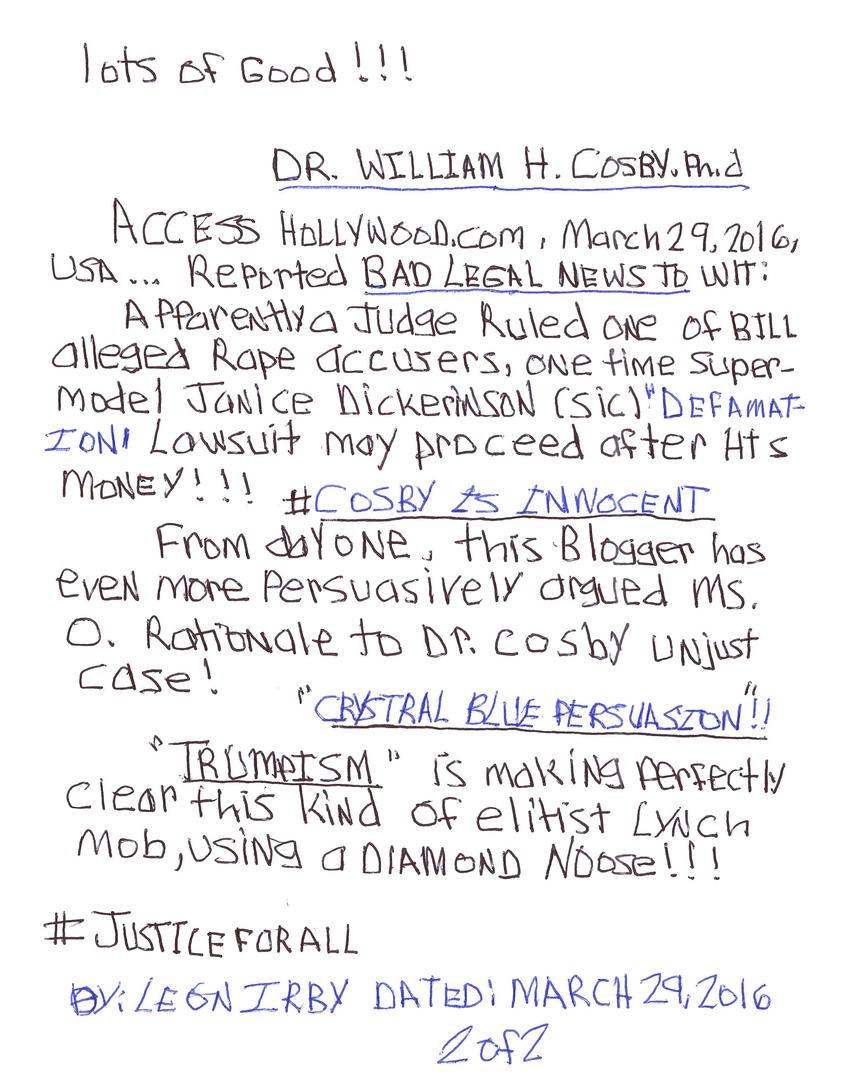 lots of Good!!!
DR. WILLIAM H. COSBY.Ph.d
ACCESS HOLLYWOOD.COM, March 29, 2016,
USA... Reported BAD LEGAL NEWS TO WIT:
Apparently a Judge Ruled one of BILL
alleged Rape accusers, one time super-
model Janice Dickerinson (sic) "DEFAMAT-
ION" Lawsuit may proceed after His
MONEY!!! #COSBY IS INNOCENT
From day ONE, this Blogger has
even more persuasively argued Ms.
O. Rationale to Dr. Cosby unjust
case!
"CRYSTRAL BLUE PERSUASION"!!
"TRUMPISM" is making perfectly
clear this kind of elitist Lynch
Mob, using a DIAMOND Noose!!!
#JUSTICEFORALL
BY: LEON IRBY DATED: MARCH 29, 2016
2 of 2